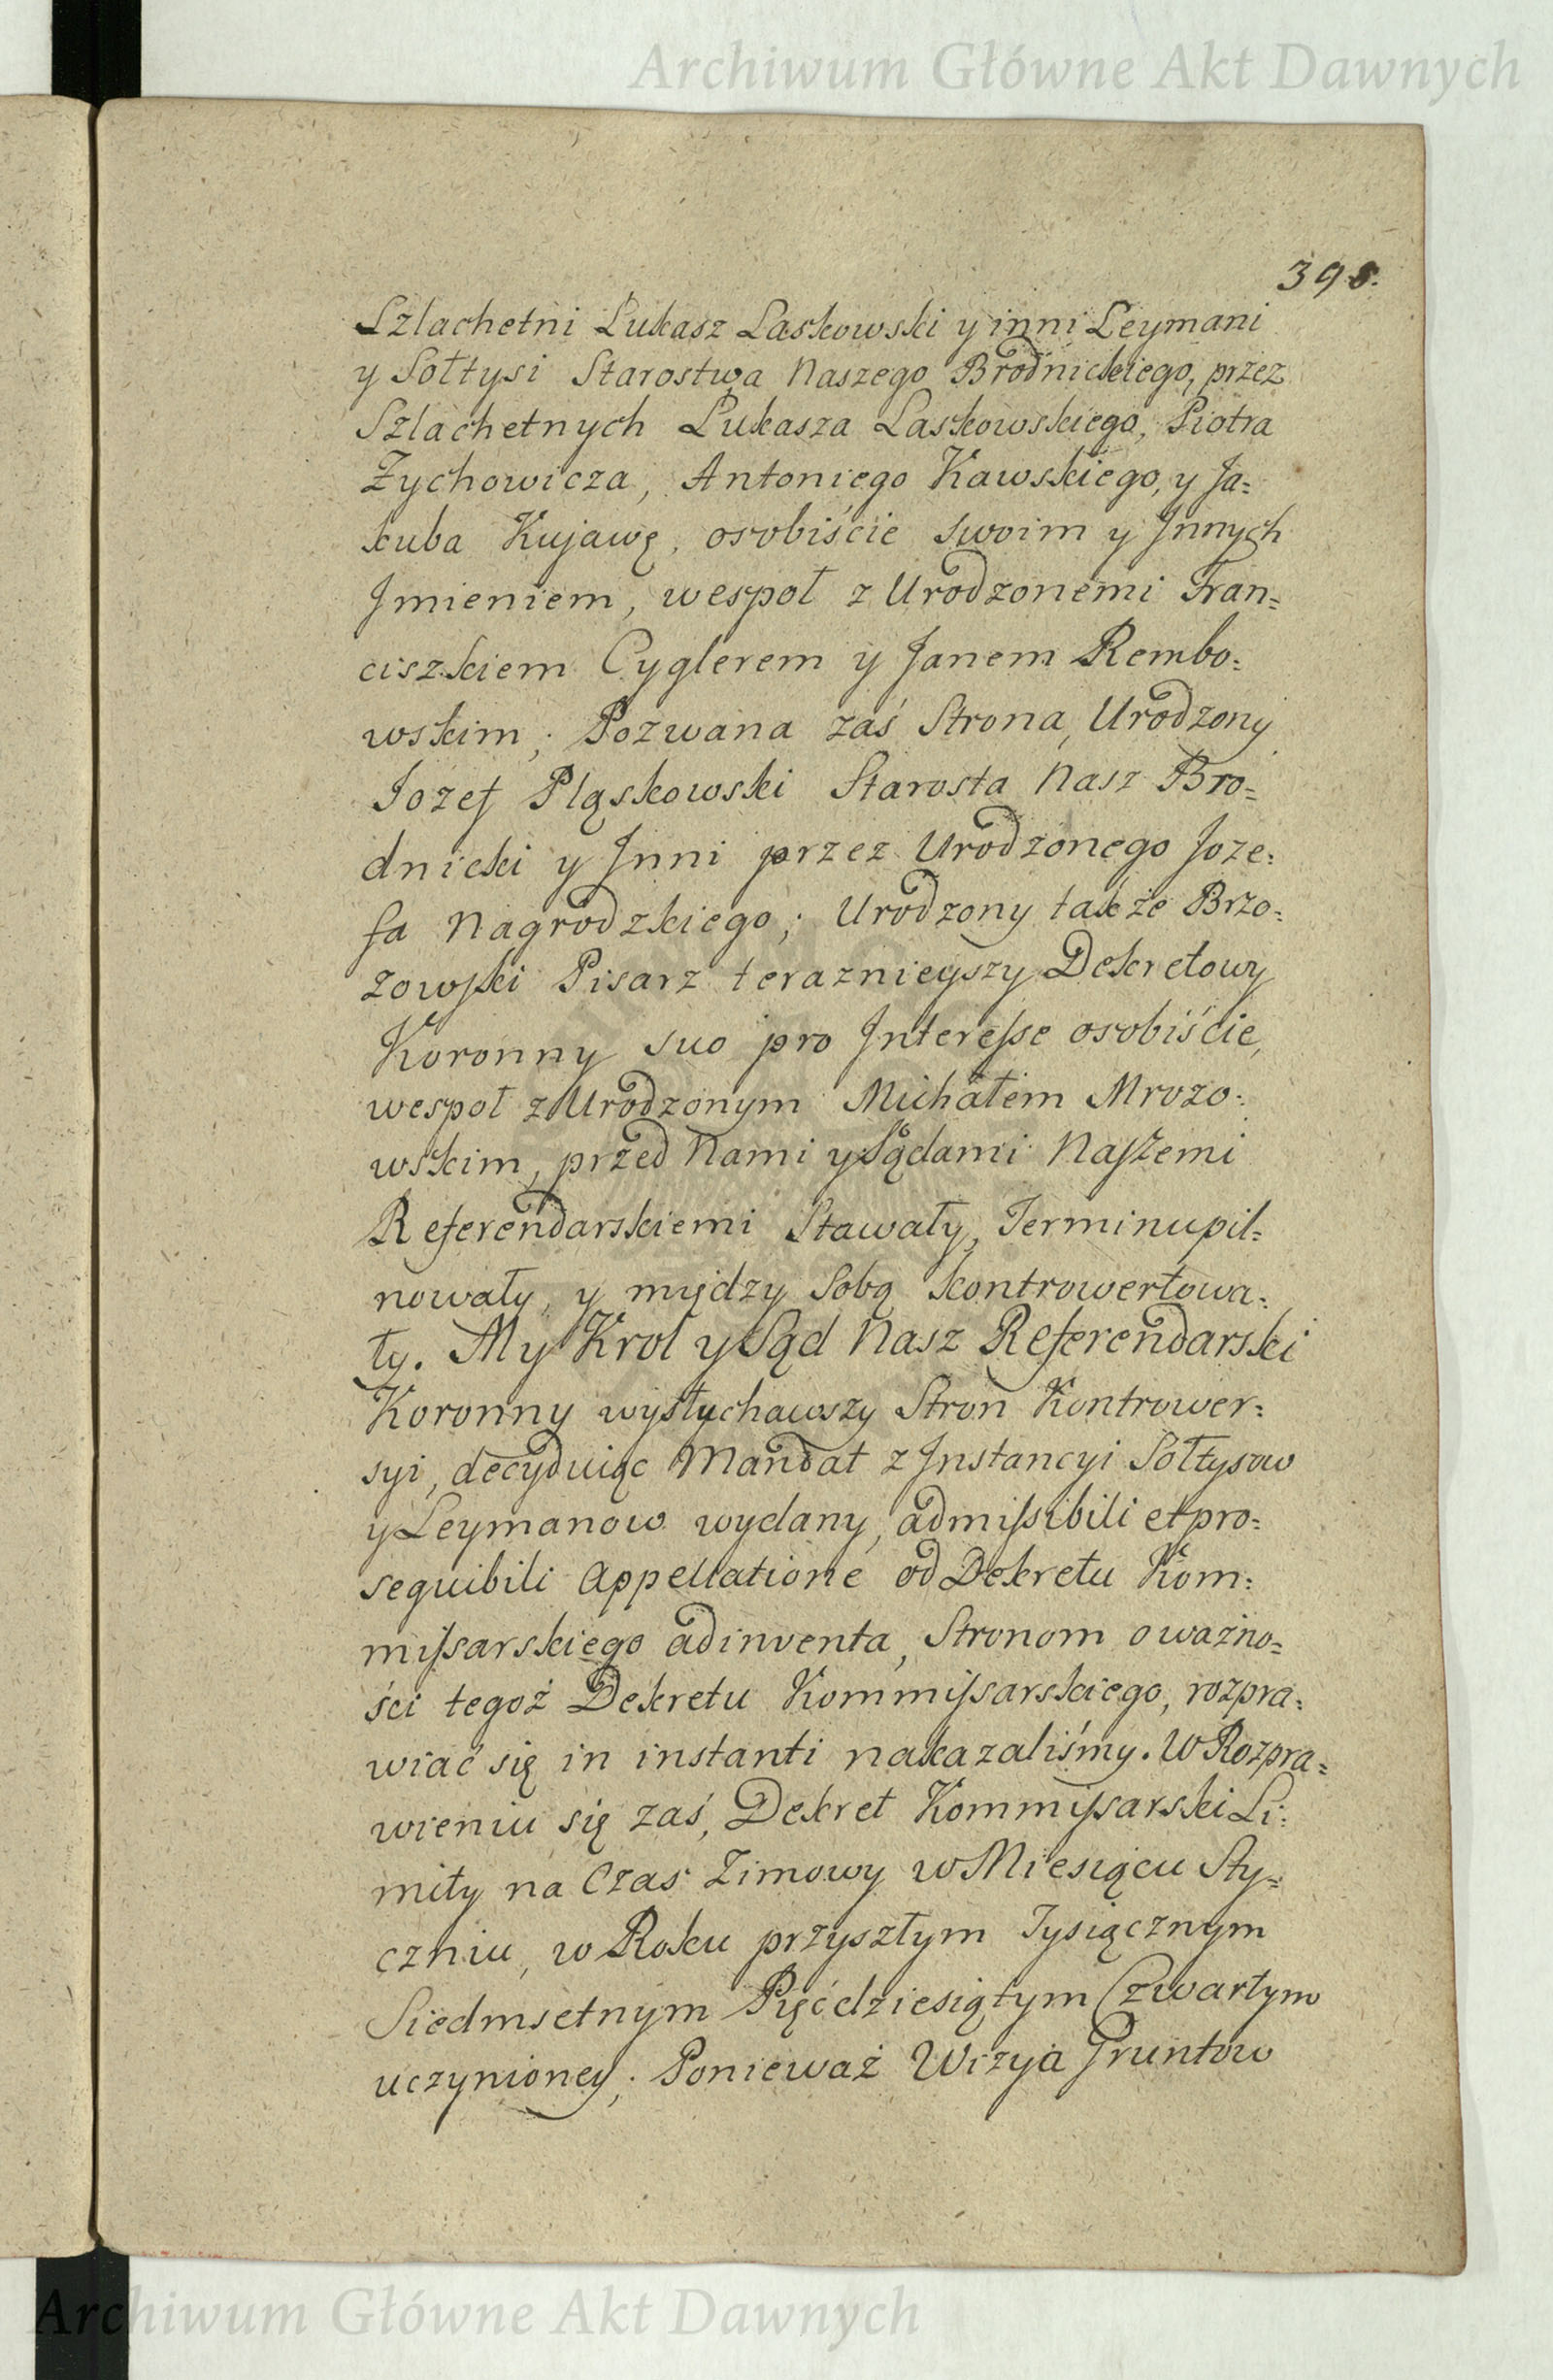 Archiwum Główne Akt Dawnych
398.
Szlachetni Łukasz Laskowski y inni Leymani
y Sołtysi Starostwa Naszego Brodnickiego, przez
Szlachetnych Łukasza Laskowskiego, Piotra
Zychowicza, Antoniego Kawskiego, y Ja=
kuba Kujawę, osobiście swoim y Jnnych
Jmieniem, wespoł z Urodzonemi Fran=
ciszkiem Cyglerem y Janem Rembo=
wskim; Pozwana zaś Strona, Urodzony
Jozef Pląskowski Starosta Nasz Bro=
dnicki y Jnni przez Urodzonego Joze=
fa Nagrodzkiego; Urodzony także Brzo=
zowski Pisarz teraznieyszy Dekretowy
Koronny suo pro Jnteresse osobiście,
wespoł z Urodzonym Michałem Mrozo=
wskim, przed Nami y Sądami Naszemi
Referendarskiemi Stawały, Terminu pil=
nowały, y między Sobą kontrowertowa=
ły. My Krol y Sąd Nasz Referendarski
Koronny wysłuchawszy Stron Kontrower=
syi, decyduiąc Mandat z Jnstancyi Sołtysow
y Leymanow wydany, admissibili et pro=
sequibili Appellatione od Dekretu Kom=
missarskiego adinventa, Stronom o ważno=
ści tegoż Dekretu Kommissarskiego, rozpra=
wiać się in instanti nakazaliśmy. W Rozpra=
wieniu się zaś, Dekret Kommissarski Li=
mity na Czas Zimowy w Miesiącu Sty=
czniu, w Roku przyszłym Tysiącznym
Siedmsetnym Pięćdziesiątym Czwartym
uczynioney; Ponieważ Wizya Gruntow
Archiwum Główne Akt Dawnych